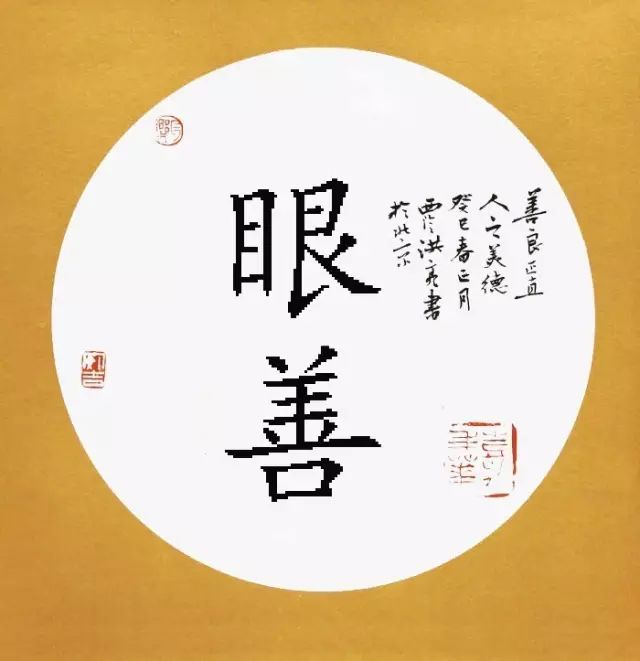 眼善
善良正直
人之美德
癸巳春正月
洪亮书
于北京